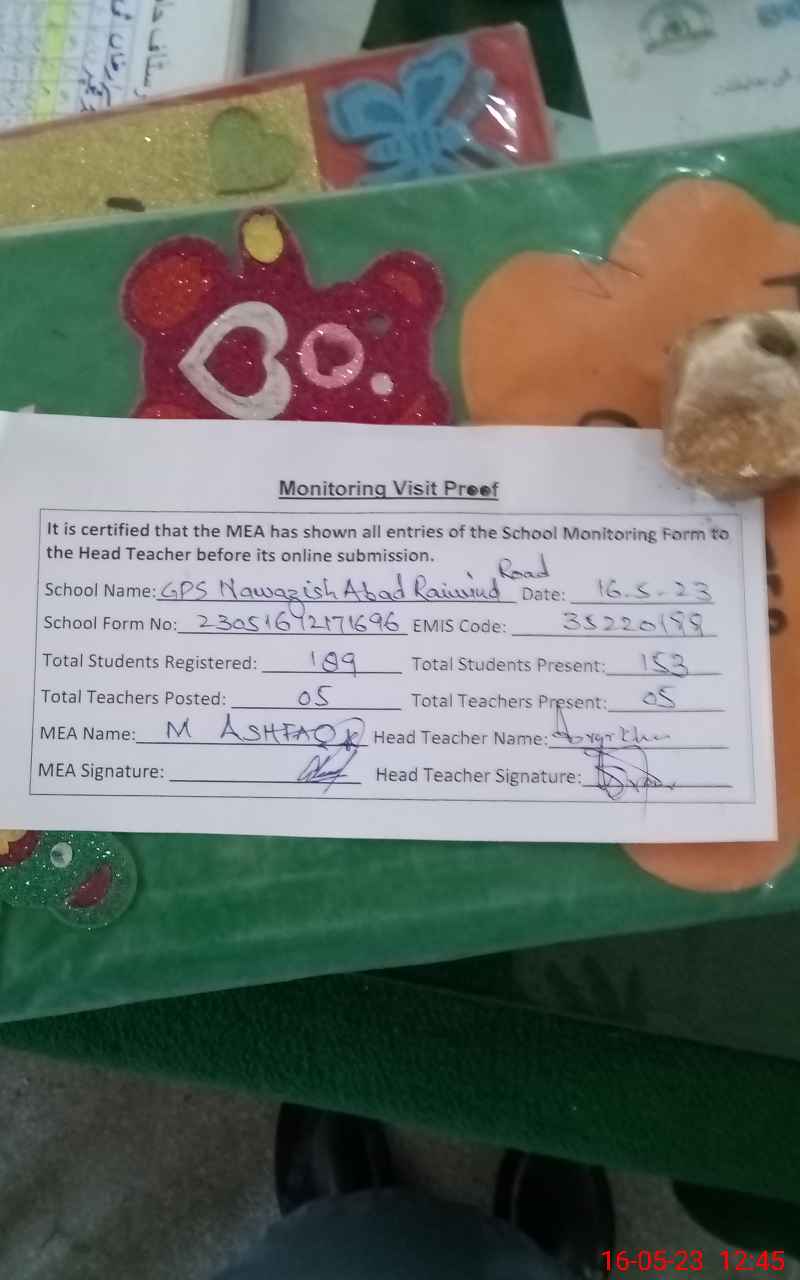 Monitoring Visit Proof
It is certified that the MEA has shown all entries of the School Monitoring Form to
the Head Teacher before its online submission.
School Name: GPS Nawazish Abad Raiwind Road Date: 16.5-23
School Form No: 23051642171696 EMIS Code: 35220199
Total Students Registered: 189 Total Students Present: 153
Total Teachers Posted: 05 Total Teachers Present: 05
MEA Name: M ASHFAQ Head Teacher Name:
MEA Signature: Head Teacher Signature:
16-05-23 12:45